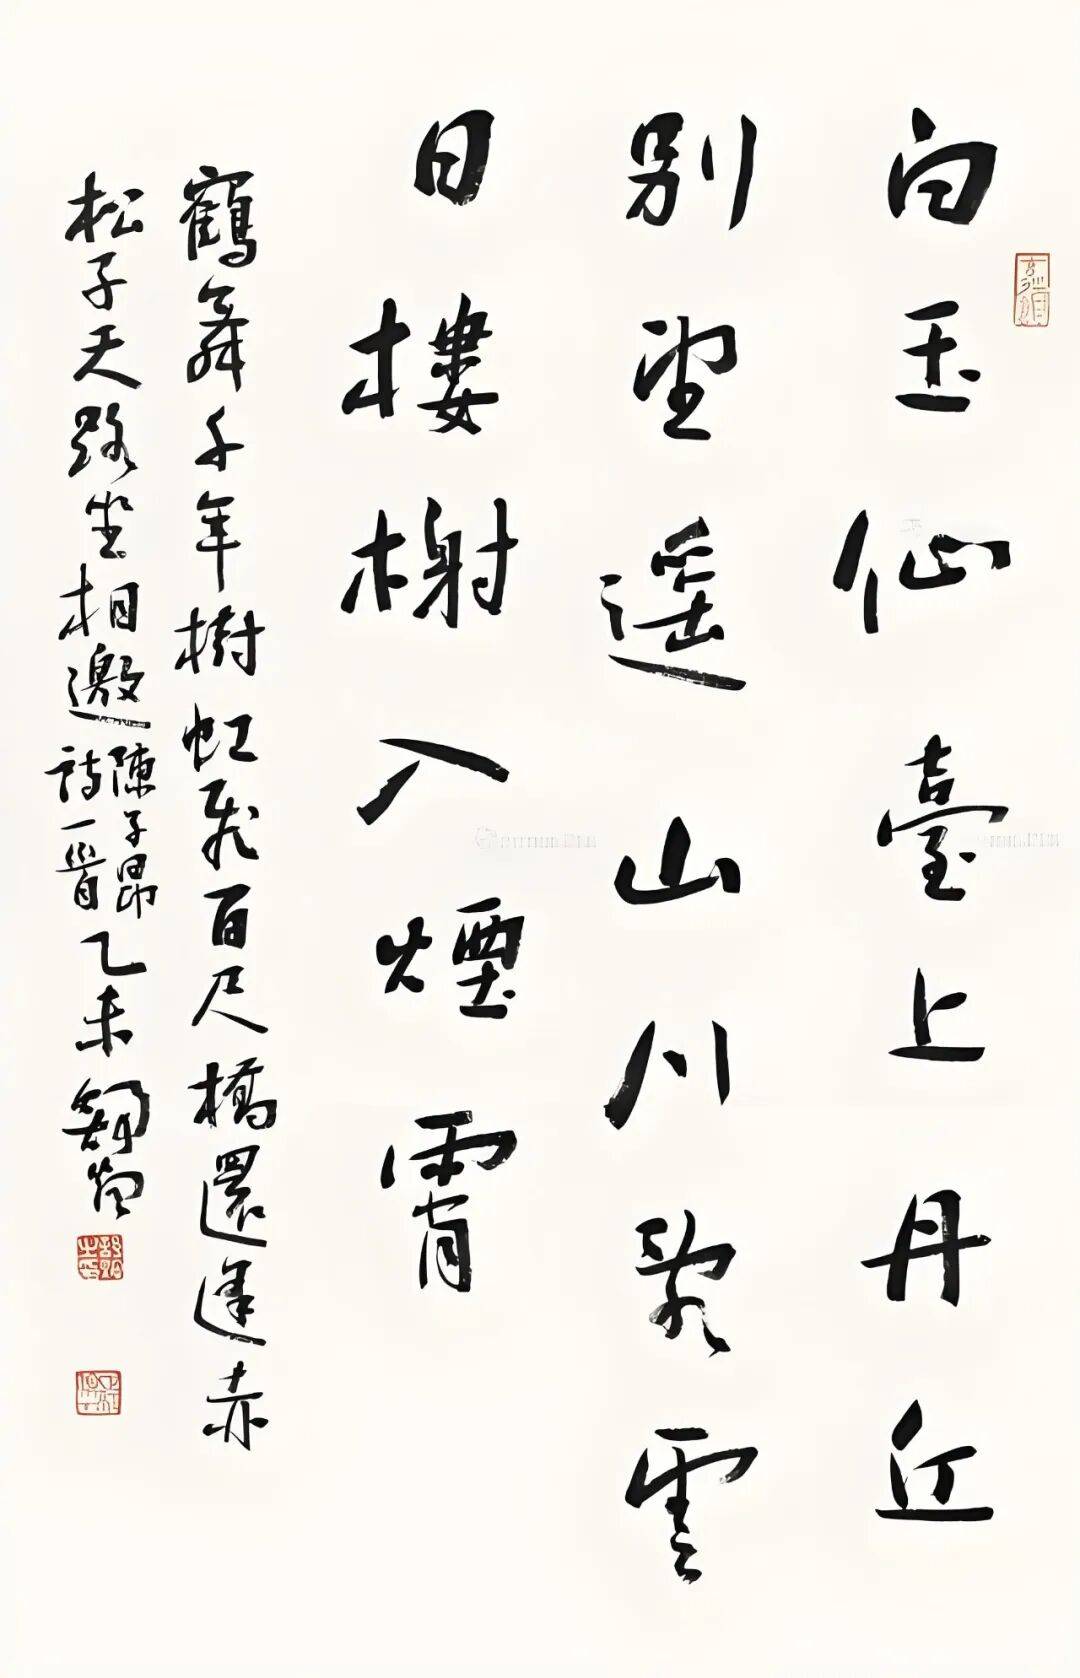 白玉仙臺上丹丘
别望遥山川亂雲
日樓榭入煙霄
鶴舞千年樹虹飛百尺橋還逢赤
松子天路坐相邀
陳子昂
詩一首
乙未